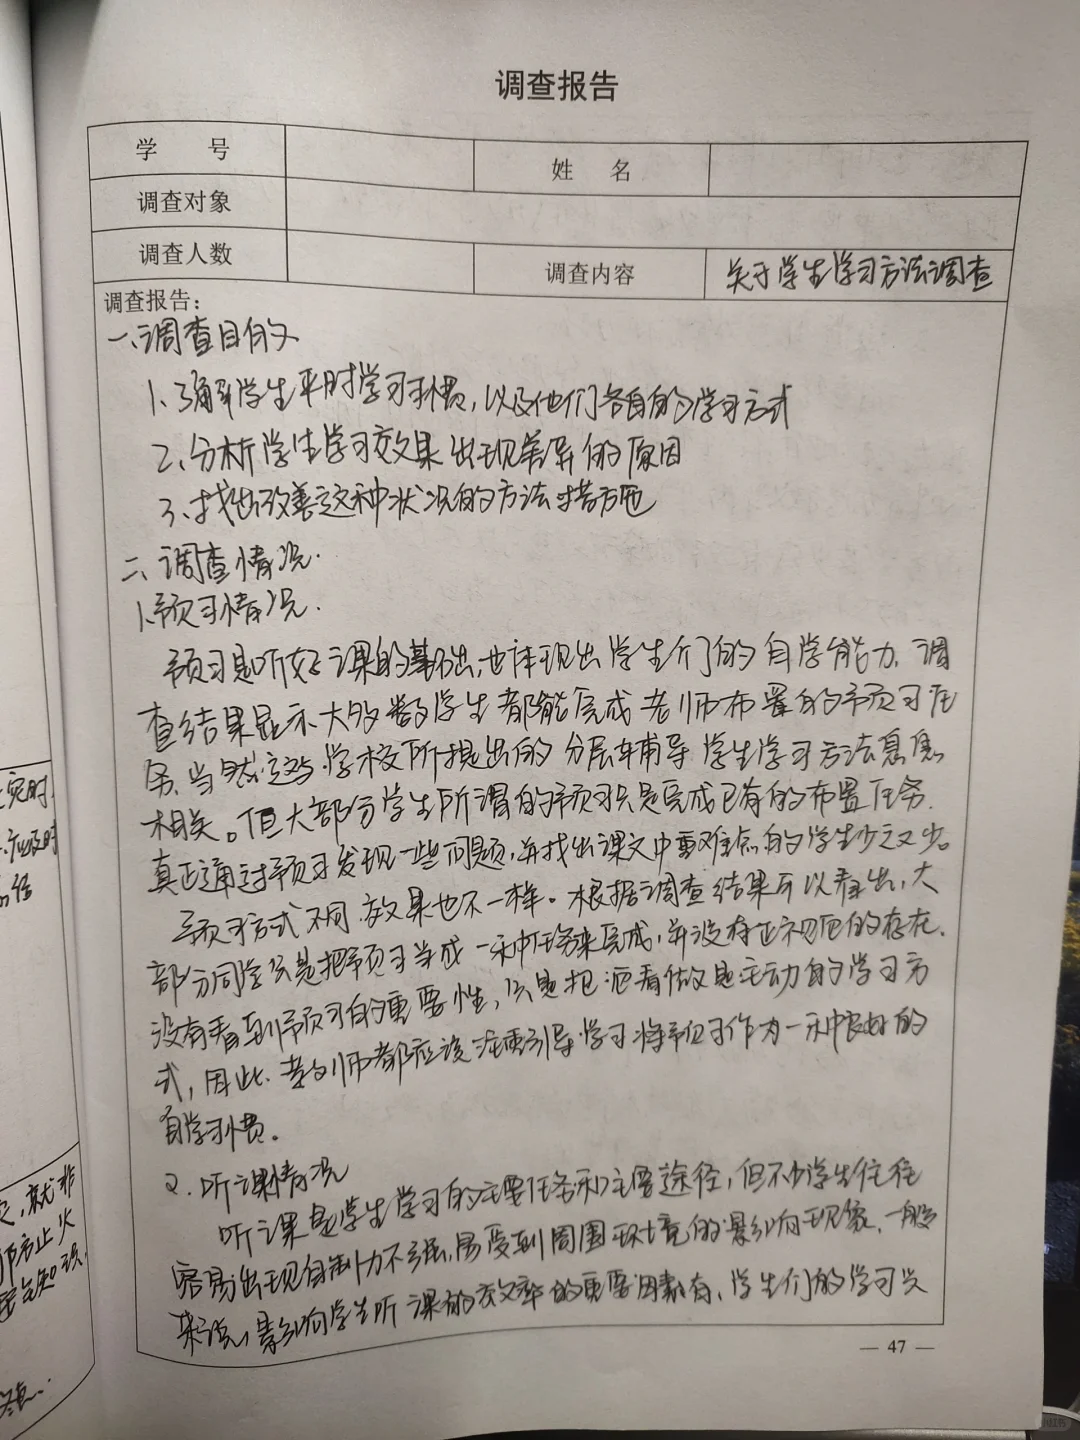 调查报告
学 号
姓 名
调查对象
调查人数
调查内容
关于学生学习方法调查
调查报告:
一、调查目的
1、了解学生平时学习习惯,以及他们各自的学习方式
2、分析学生学习效果出现差异的原因
3、找出改善这种状况的方法措施
二、调查情况.
1.预习情况.
预习是听好课的基础,也体现出学生们的自学能力,调
查结果显示大多数学生都能完成老师布置的预习任
务,当然这与学校所提出的分层辅导学生学习方法息息
相关。但大部分学生所谓的预习只是完成已有的布置任务,
真正通过预习发现一些问题,并找出课文中重难点的学生少之又少。
预习方式不同,效果也不一样。根据调查结果可以看出,大
部分同学只是把预习当成一种任务来完成,并没有正视它的存在,
没有看到预习的重要性,只是把 看做是主动的学习方
式,因此,老师都应该注重引导学习将预习作为一种良好的
自学习惯。
2.听课情况
听课是学生学习的主要任务和主要途径,但不少学生往往
容易出现自制力不强,易受到周围环境的影响现象,一般
来说,影响学生听课的效率的重要因素有,学生们的学习兴
— 47 —
究时
应及时
,就非
防止火